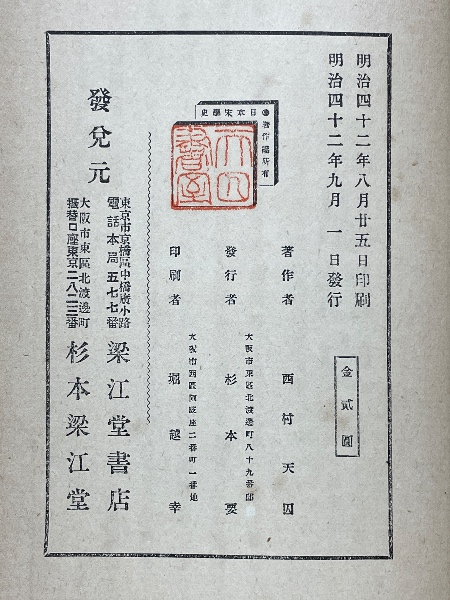 明治四十二年八月廿五日印刷
明治四十二年九月一日發行
金貳圓
日本宋學史
著作權所有
著作者 西村天囚
大阪市東區北渡邊町八十九番邸
發行者 杉本要
大阪市西區阿波座二番町一番地
印刷者 堀越幸
發兌元
東京市京橋區中橋廣小路
電話本局五七七番
梁江堂書店
大阪市東區北渡邊町
振替口座東京二八二三番
杉本梁江堂